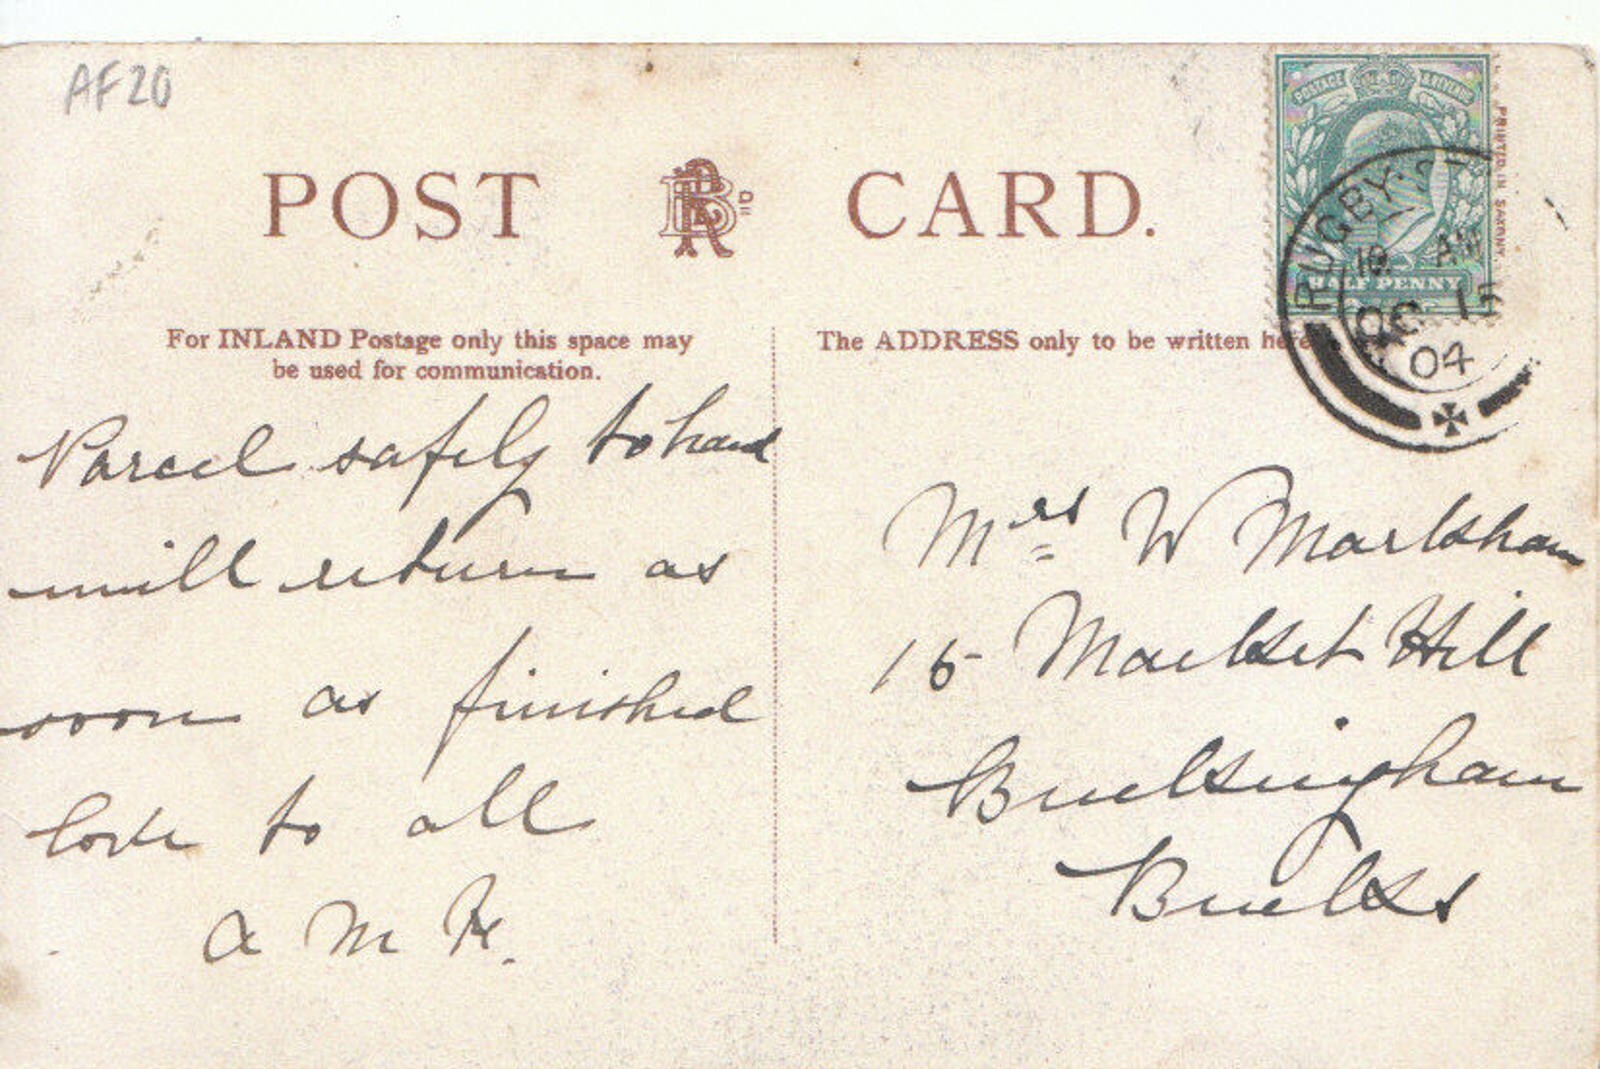 AF20
POST CARD.
For INLAND Postage only this space may
be used for communication.
The ADDRESS only to be written here
POSTAGE & REVENUE
HALF PENNY
PRINTED IN SAXONY
RUGBY
10 AM
OC 15
04
Parcel safely to hand
will return as
soon as finished
love to all
A M H.
Mrs W Marksham
15 Market Hill
Buckingham
Bucks